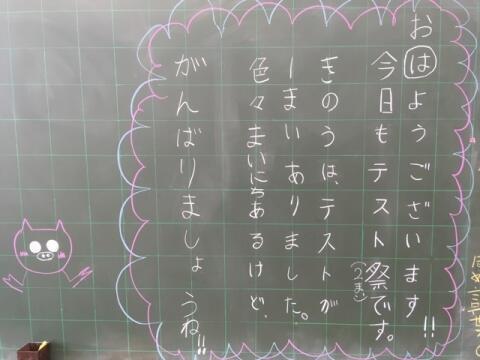 おはようございます!!
今日もテスト祭です。
(2まい)
きのうは、テストが
1まいありました。
色々まいにちあるけど、
がんばりましょうね!!